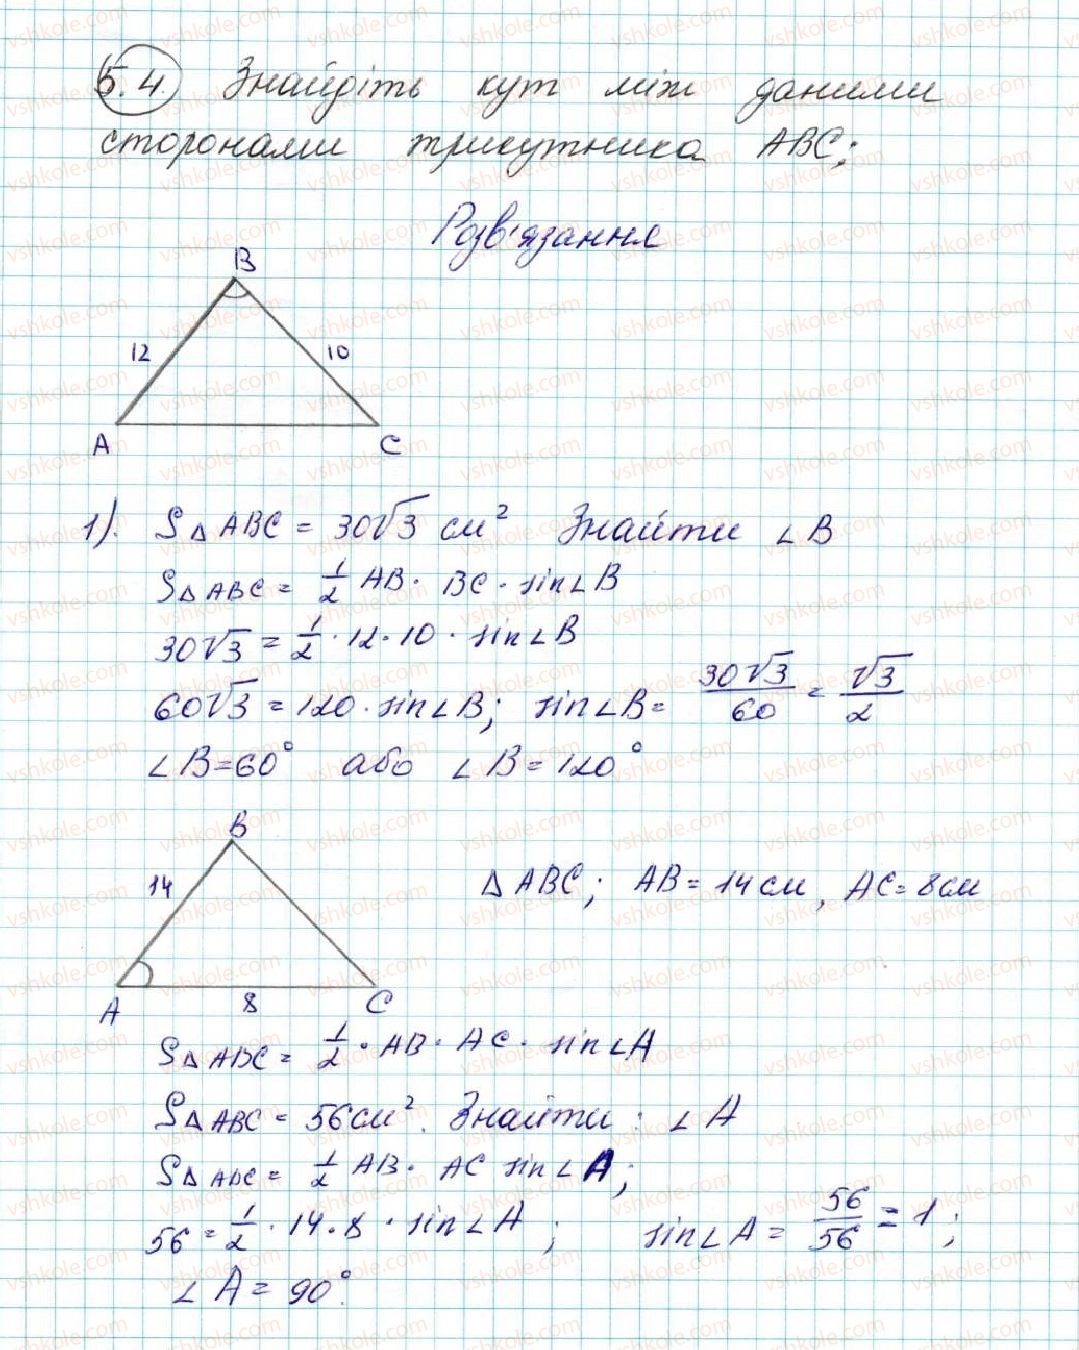 5.4. Знайдіть кут між даними
сторонами трикутника ABC;
Розв'язання
B
12
10
A
C
1). S△ABC = 30√3 см² Знайти ∠B
S△ABC = 1/2 AB · BC · sin∠B
30√3 = 1/2 · 12 · 10 · sin∠B
60√3 = 120 · sin∠B; sin∠B = 30√3/60 = √3/2
∠B = 60° або ∠B = 120°
B
14
△ABC; AB = 14 см, AC = 8 см
A
8
C
S△ABC = 1/2 · AB · AC · sin∠A
S△ABC = 56 см². Знайти : ∠A
S△ABC = 1/2 AB · AC sin∠A;
56 = 1/2 · 14 · 8 · sin∠A ; sin∠A = 56/56 = 1;
∠A = 90°.
vshkole.com